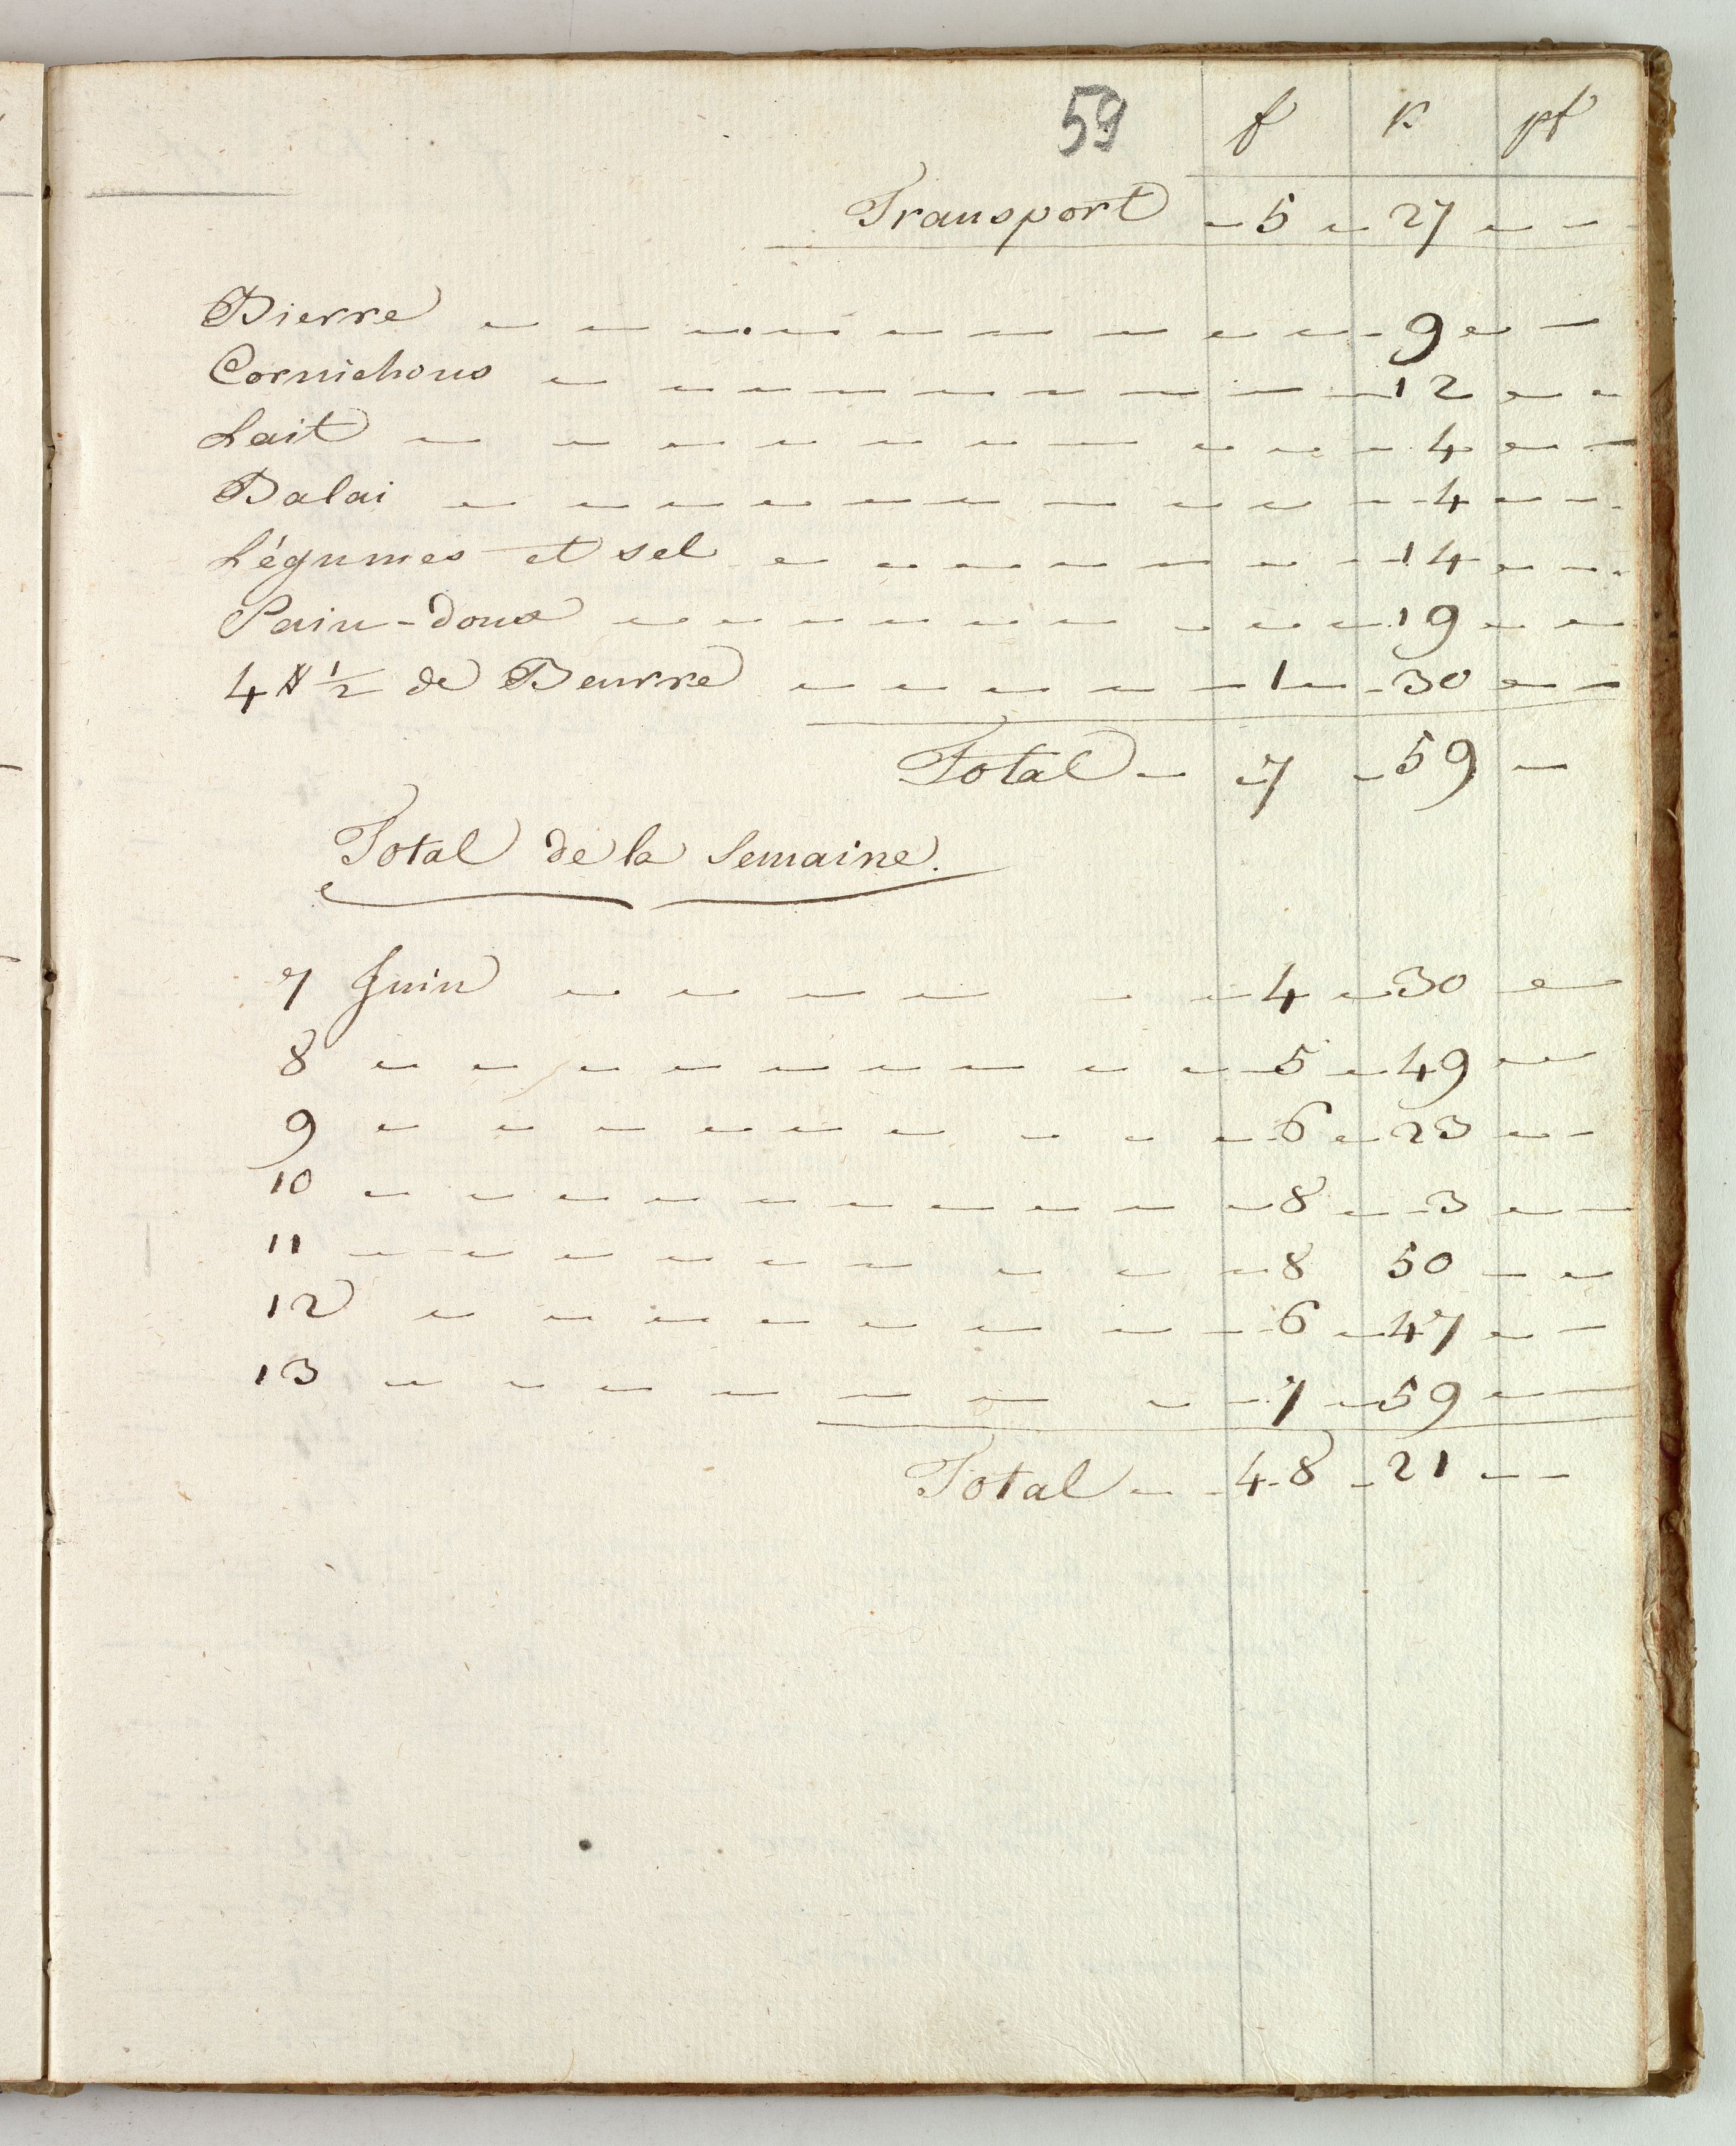 59 f k pf
Transport - 5 - 27 - -
Bierre - - - - - - - - - - 9 - -
Cornichons - - - - - - - - - 12 - -
Lait - - - - - - - - - - 4 - -
Balai - - - - - - - - - - 4 - -
Légumes et sel - - - - - - - 14 - -
Pain-doux - - - - - - - - - 19 - -
4 ℔ 1/2 de Beurre - - - - - 1 - 30 - -
Total - 7 - 59 -
Total de la Semaine.
7 Juin - - - - - - 4 - 30 -
8 - - - - - - - - - 5 - 49 -
9 - - - - - - - - - 6 - 23 - -
10 - - - - - - - - - - 8 - 3 - -
11 - - - - - - - - - 8 50 - -
12 - - - - - - - - 6 - 47 - -
13 - - - - - - - - 7 - 59 - -
Total - 48 - 21 - -